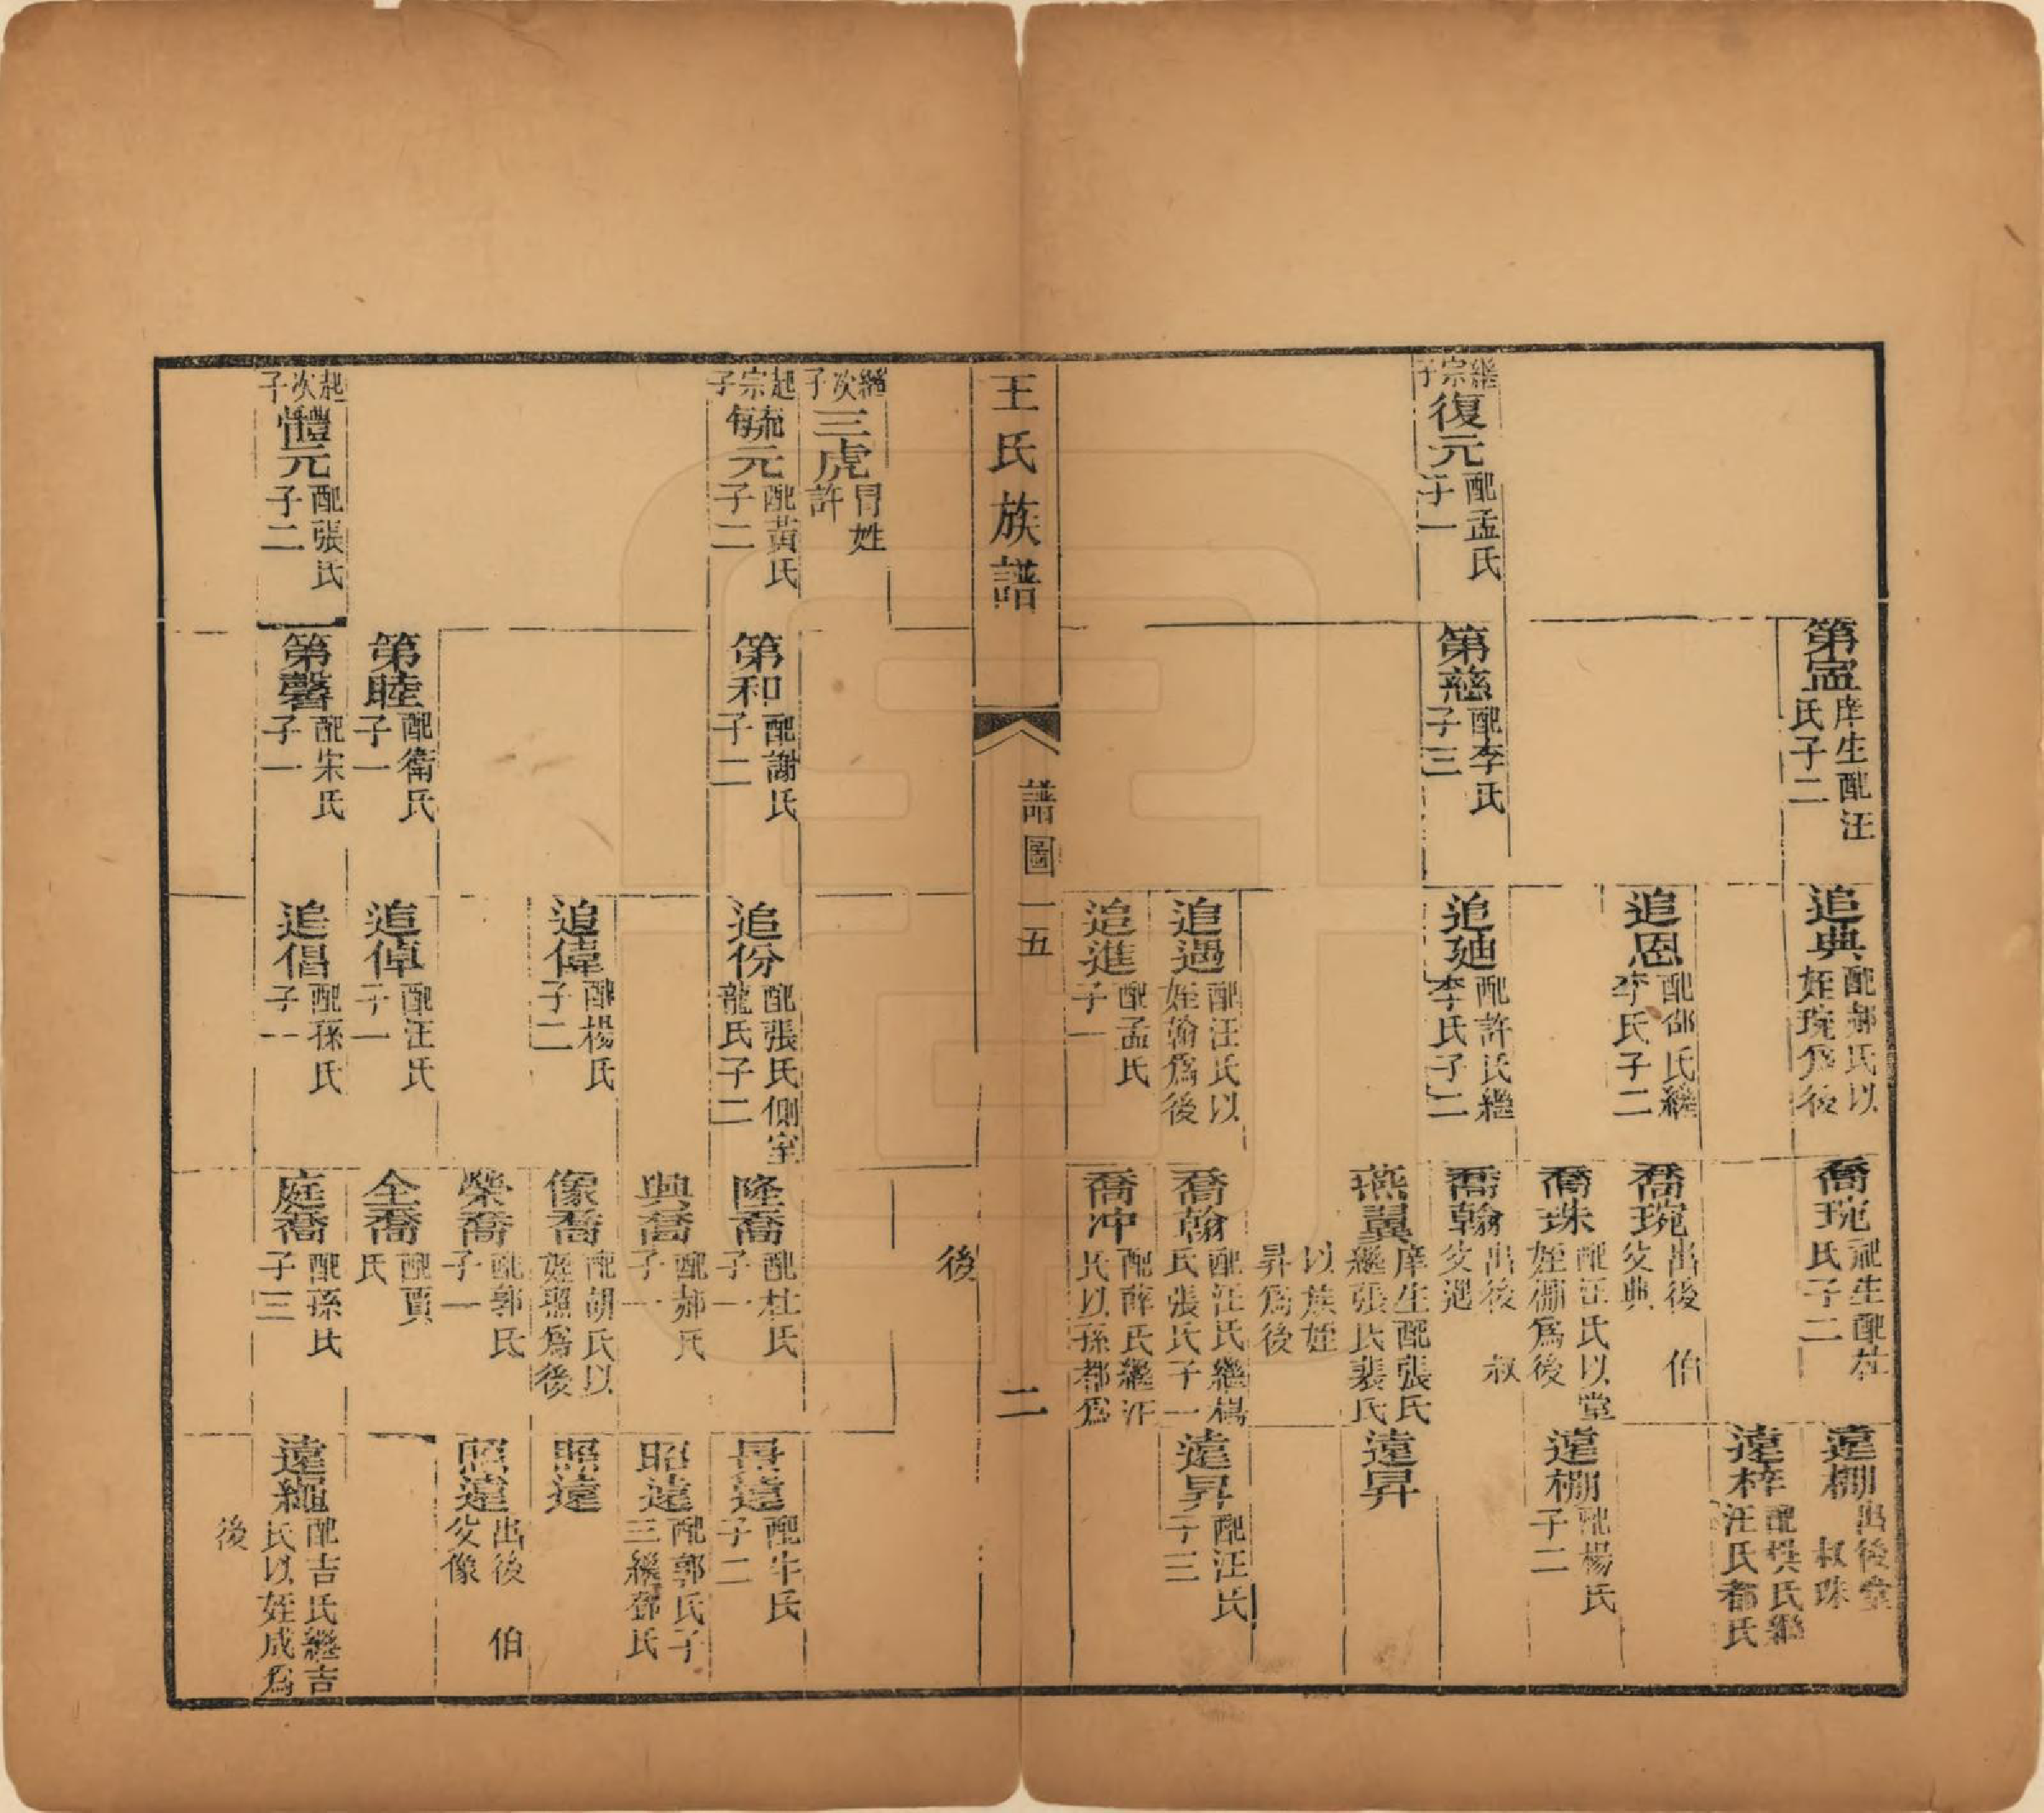 第寍 庠生配汪氏子二
追典 配郝氏以姪琬爲後
喬琬 配生配杜氏子二
遠棚 出後堂叔珠
遠梓 配吳氏繼汪氏都氏
追恩 配邵氏繼李氏子二
喬琬 出後伯父典
喬珠 配汪氏以堂姪棚爲後
遠棚 配楊氏子二
繼宗子 復元 配孟氏子一
第慈 配李氏子三
追廸 配許氏繼李氏子二
喬翰 出後叔父過
燕翼 庠生配張氏繼張氏裴氏以族姪昇爲後
遠昇
追過 配汪氏以姪翰爲後
喬翰 配汪氏繼楊氏張氏子一
遠昇 配汪氏子三
追進 配孟氏子一
喬冲 配薛氏繼汪氏以孫都爲後
王氏族譜
譜圖一五
二
繼次子 三虎 冒姓許
起宗子 元 配黃氏子二
第和 配謝氏子二
追份 配張氏側室龍氏子二
隆喬 配杜氏子一
景遠 配牛氏子二
興喬 配郝氏子一
昭遠 配郭氏子三繼鄧氏
追偉 配楊氏子二
像喬 配胡氏以姪照爲後
照遠
榮喬 配郭氏子一
照遠 出後伯父像
第睦 配衛氏子一
追倬 配汪氏子一
全喬 配賈氏
起次子 體元 配張氏子二
第馨 配宋氏子一
追倡 配孫氏子一
庭喬 配孫氏子三
遠繩 配吉氏繼吉氏以姪成爲後